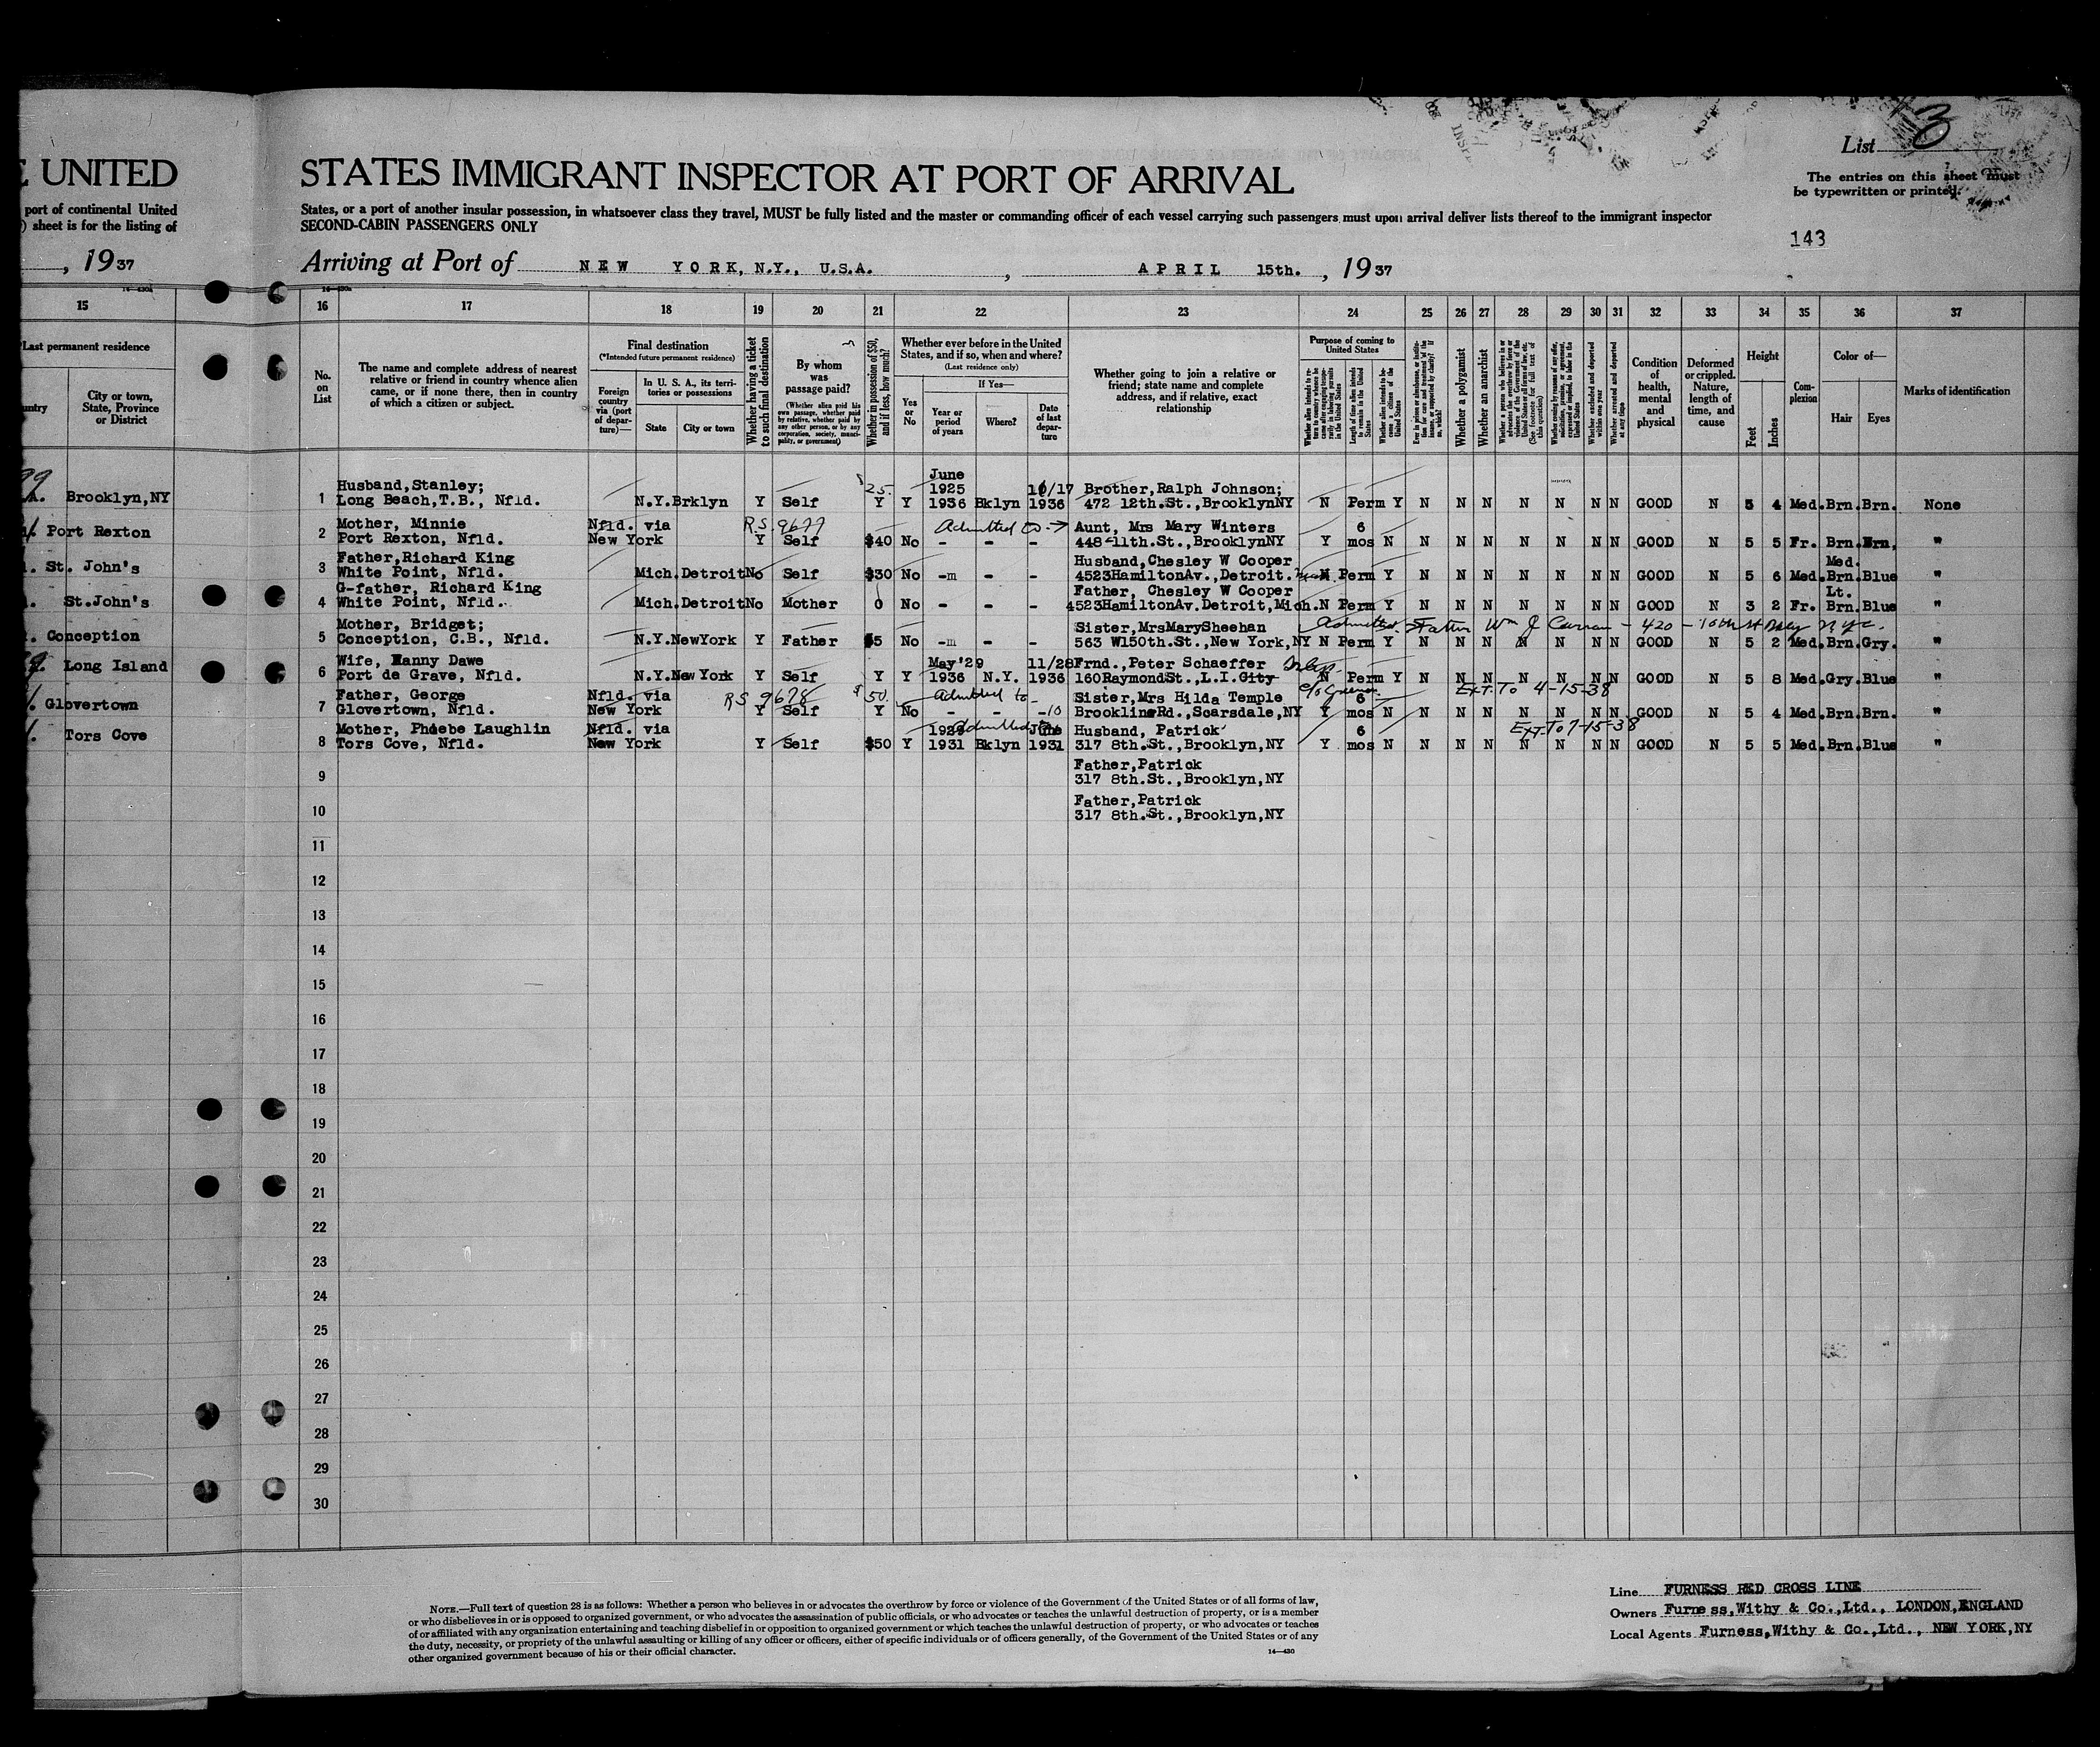 List 3
The entries on this sheet must
be typewritten or printed.
E UNITED STATES IMMIGRANT INSPECTOR AT PORT OF ARRIVAL
port of continental United States, or a port of another insular possession, in whatsoever class they travel, MUST be fully listed and the master or commanding officer of each vessel carrying such passengers must upon arrival deliver lists thereof to the immigrant inspector
) sheet is for the listing of SECOND-CABIN PASSENGERS ONLY
143
, 1937 Arriving at Port of NEW YORK, N.Y., U.S.A. , APRIL 15th. , 1937
15 16 17 18 19 20 21 22 23 24 25 26 27 28 29 30 31 32 33 34 35 36 37
Last permanent residence
City or town,
State, Province
or District
No.
on
List
The name and complete address of nearest
relative or friend in country whence alien
came, or if none there, then in country
of which a citizen or subject.
Final destination
(*Intended future permanent residence)
Foreign
country
via (port
of depar-
ture)—
In U. S. A., its terri-
tories or possessions
State City or town
Whether having a ticket
to such final destination
By whom
was
passage paid?
(Whether alien paid his
own passage, whether paid
by relative, whether paid by
any other person, or by any
corporation, society, munici-
pality, or government)
Whether in possession of $50,
and if less, how much?
Whether ever before in the United
States, and if so, when and where?
(Last residence only)
Yes
or
No
If Yes—
Year or
period
of years
Where?
Date
of last
depar-
ture
Whether going to join a relative or
friend; state name and complete
address, and if relative, exact
relationship
Purpose of coming to
United States
Length of time alien intends
to remain in the United
States
Whether alien intends to be-
come a citizen of the
United States
Whether a polygamist
Whether an anarchist
Whether excluded and deported
within one year
Whether arrested and deported
at any time
Condition
of
health,
mental
and
physical
Deformed
or crippled.
Nature,
length of
time, and
cause
Height
Feet Inches
Com-
plexion
Color of—
Hair Eyes
Marks of identification
Husband,Stanley; 25. June 1925 10/17 Brother,Ralph Johnson;
Brooklyn,NY 1 Long Beach,T.B., Nfld. N.Y.Brklyn Y Self Y Y 1936 Bklyn 1936 472 12th.St.,BrooklynNY N Perm Y N N N N N N N GOOD N 5 4 Med.Brn.Brn. None
Mother, Minnie Nfld. via R.S. 9677 Admitted to → Aunt, Mrs Mary Winters 6
Port Rexton 2 Port Rexton, Nfld. New York Y Self $40 No - - - 448-11th.St.,BrooklynNY Y mos N N N N N N N N GOOD N 5 5 Fr. Brn.Brn. "
Father,Richard King Husband,Chesley W Cooper Med.
St. John's 3 White Point, Nfld. Mich.Detroit No Self $30 No - - - 4523HamiltonAv.,Detroit. N Perm Y N N N N N N N GOOD N 5 6 Med.Brn.Blue "
G-father, Richard King Father, Chesley W Cooper Lt.
St.John's 4 White Point, Nfld. Mich.Detroit No Mother 0 No - - - 4523HamiltonAv.Detroit,Mich.N Perm Y N N N N N N N GOOD N 3 2 Fr. Brn.Blue "
Mother, Bridget; Sister,MrsMarySheehan Admitted. Father Wm J Curran - 420
Conception 5 Conception, C.B., Nfld. N.Y.NewYork Y Father $5 No - - 563 W150th.St.,New York,NY N Perm Y N N N N N N N GOOD N 5 2 Med.Brn.Gry. "
Wife, Fanny Dawe May'29 11/28 Frnd.,Peter Schaeffer
Long Island 6 Port de Grave, Nfld. N.Y.New York Y Self Y Y 1936 N.Y. 1936 160RaymondSt.,L.I.City N Perm Y N N N N N N N GOOD N 5 8 Med.Gry.Blue "
Father, George Nfld. via RS 9678 $50. Admitted to Sister,Mrs Hilda Temple 6 EXT. To 4-15-38
Glovertown 7 Glovertown, Nfld. New York Y Self Y No - - - BrooklineRd.,Scarsdale,NY Y mos N N N N N N N N GOOD N 5 4 Med.Brn.Brn. "
Mother, Phoebe Laughlin Nfld. via 1929 Admitted June Husband, Patrick 6 EXT. To 7-15-38
Tors Cove 8 Tors Cove, Nfld. New York Y Self $50 Y 1931 Bklyn 1931 317 8th.St.,Brooklyn,NY Y mos N N N N N N N N GOOD N 5 5 Med.Brn.Blue "
Father,Patrick
9 317 8th.St.,Brooklyn,NY
Father,Patrick
10 317 8th.St.,Brooklyn,NY
11
12
13
14
15
16
17
18
19
20
21
22
23
24
25
26
27
28
29
30
NOTE.—Full text of question 28 is as follows: Whether a person who believes in or advocates the overthrow by force or violence of the Government of the United States or of all forms of law,
or who disbelieves in or is opposed to organized government, or who advocates the assassination of public officials, or who advocates or teaches the unlawful destruction of property, or is a member
of or affiliated with any organization entertaining and teaching disbelief in or opposition to organized government or which teaches the unlawful destruction of property, or who advocates or teaches
the duty, necessity, or propriety of the unlawful assaulting or killing of any officer or officers, either of specific individuals or of officers generally, of the Government of the United States or of any
other organized government because of his or their official character.
14—430
Line FURNESS RED CROSS LINE
Owners Furness,Withy & Co.,Ltd., LONDON,ENGLAND
Local Agents Furness,Withy & Co.,Ltd., NEW YORK,NY